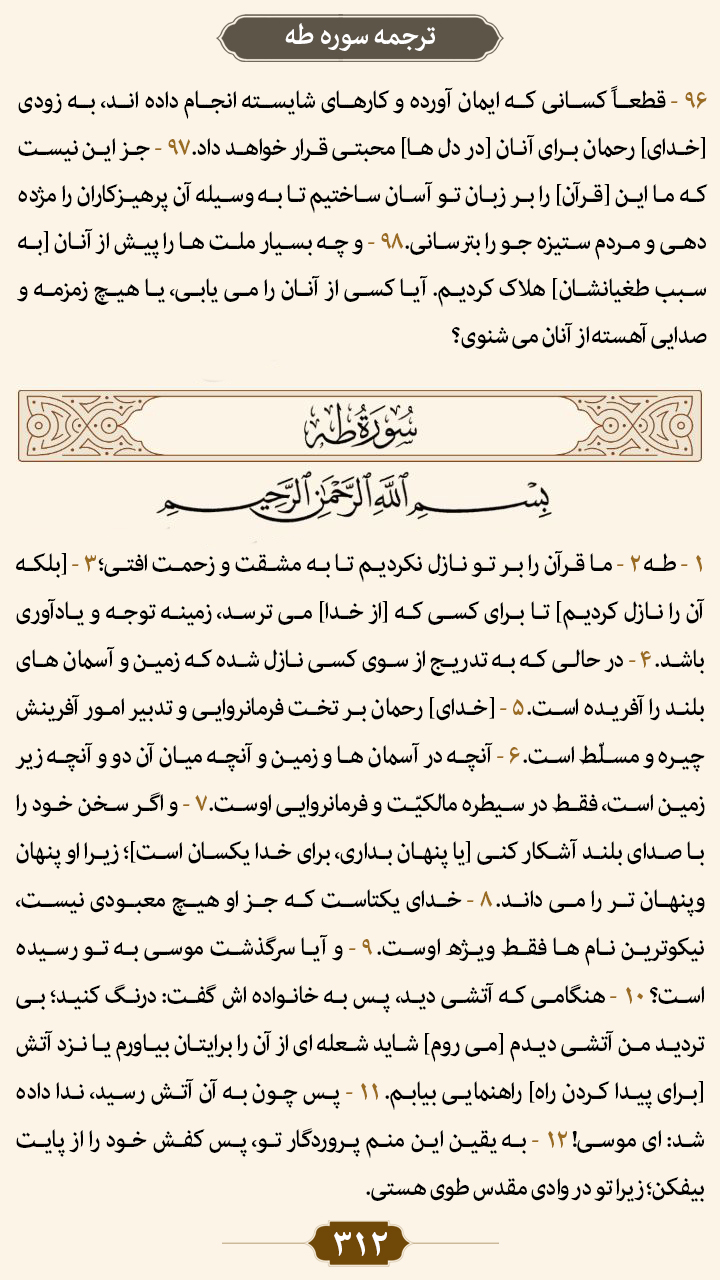 ترجمه سوره طه
۹۶ - قطعاً کسانی که ایمان آورده و کارهای شایسته انجام داده اند، به زودی
[خدای] رحمان برای آنان [در دل ها] محبتی قرار خواهد داد.۹۷ - جز این نیست
که ما این [قرآن] را بر زبان تو آسان ساختیم تا به وسیله آن پرهیزکاران را مژده
دهی و مردم ستیزه جو را بترسانی.۹۸ - و چه بسیار ملت ها را پیش از آنان [به
سبب طغیانشان] هلاک کردیم. آیا کسی از آنان را می یابی، یا هیچ زمزمه و
صدایی آهسته از آنان می شنوی؟
سُورَةُ طه
بِسْمِ اللَّهِ الرَّحْمَٰنِ الرَّحِيمِ
۱ - طه۲ - ما قرآن را بر تو نازل نکردیم تا به مشقت و زحمت افتی؛۳ - [بلکه
آن را نازل کردیم] تا برای کسی که [از خدا] می ترسد، زمینه توجه و یادآوری
باشد.۴ - در حالی که به تدریج از سوی کسی نازل شده که زمین و آسمان های
بلند را آفریده است.۵ - [خدای] رحمان بر تخت فرمانروایی و تدبیر امور آفرینش
چیره و مسلّط است.۶ - آنچه در آسمان ها و زمین و آنچه میان آن دو و آنچه زیر
زمین است، فقط در سیطره مالکیّت و فرمانروایی اوست.۷ - و اگر سخن خود را
با صدای بلند آشکار کنی [یا پنهان بداری، برای خدا یکسان است]؛ زیرا او پنهان
وپنهان تر را می داند.۸ - خدای یکتاست که جز او هیچ معبودی نیست،
نیکوترین نام ها فقط ویژه اوست.۹ - و آیا سرگذشت موسی به تو رسیده
است؟۱۰ - هنگامی که آتشی دید، پس به خانواده اش گفت: درنگ کنید؛ بی
تردید من آتشی دیدم [می روم] شاید شعله ای از آن را برایتان بیاورم یا نزد آتش
[برای پیدا کردن راه] راهنمایی بیابم.۱۱ - پس چون به آن آتش رسید، ندا داده
شد: ای موسی!۱۲ - به یقین این منم پروردگار تو، پس کفش خود را از پایت
بیفکن؛ زیرا تو در وادی مقدس طوی هستی.
۳۱۲